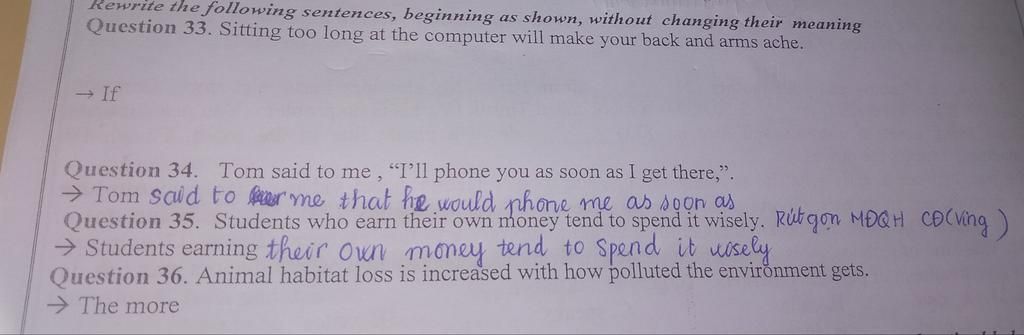 Rewrite the following sentences, beginning as shown, without changing their meaning
Question 33. Sitting too long at the computer will make your back and arms ache.
→ If
Question 34. Tom said to me , “I’ll phone you as soon as I get there,”.
→ Tom said to me that he would phone me as soon as
Question 35. Students who earn their own money tend to spend it wisely. Rút gọn MĐQH CĐ(Ving)
→ Students earning their own money tend to spend it wisely
Question 36. Animal habitat loss is increased with how polluted the environment gets.
→ The more